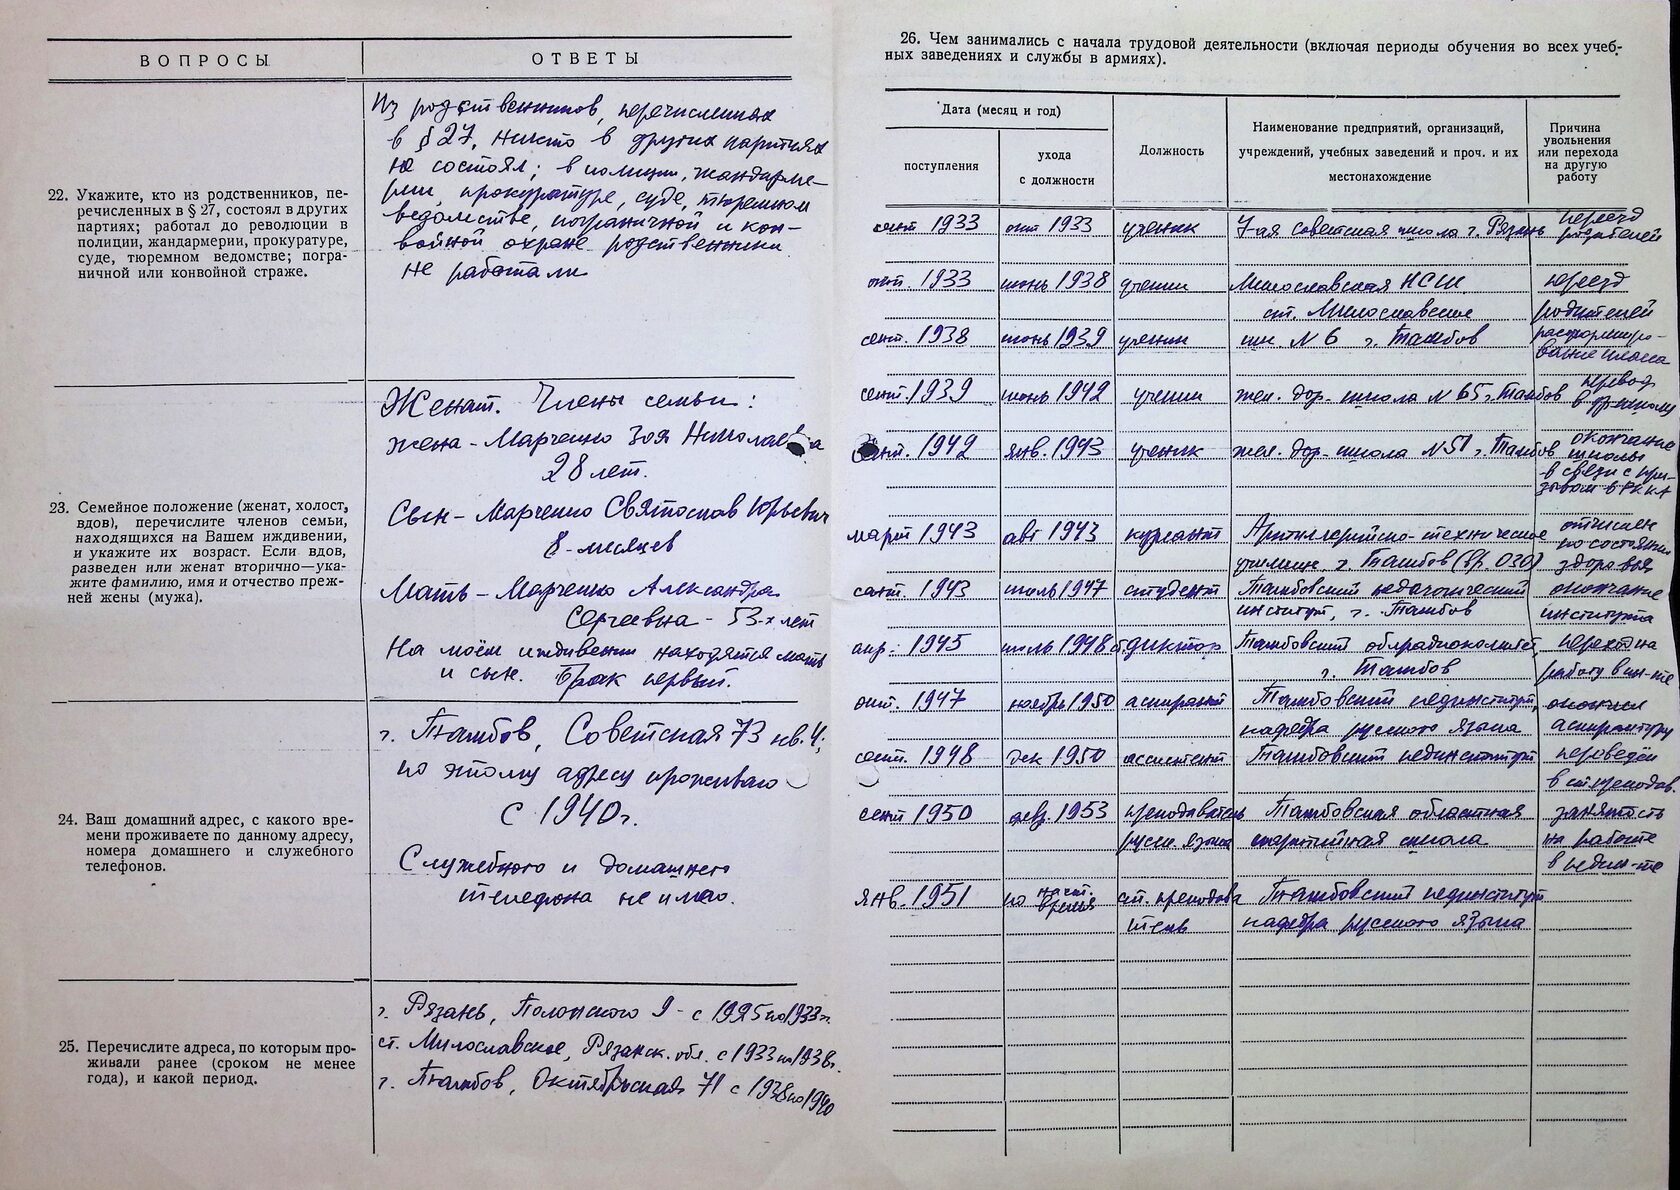 ВОПРОСЫ
ОТВЕТЫ
22. Укажите, кто из родственников, пе-
речисленных в § 27, состоял в других
партиях; работал до революции в
полиции, жандармерии, прокуратуре,
суде, тюремном ведомстве; погра-
ничной или конвойной страже.
Из родственников, перечисленных
в § 27, никто в других партиях
не состоял; в полиции, жандарме-
рии, прокуратуре, суде, тюремном
ведомстве, пограничной и кон-
войной охране родственники
не работали
23. Семейное положение (женат, холост,
вдов), перечислите членов семьи,
находящихся на Вашем иждивении,
и укажите их возраст. Если вдов,
разведен или женат вторично—ука-
жите фамилию, имя и отчество преж-
ней жены (мужа).
Женат. Члены семьи:
жена – Марченко Зоя Николаевна
28 лет.
Сын – Марченко Святослав Юрьевич
8 – месяцев
Мать – Марченко Александра
Сергеевна – 53-х лет
На моём иждивении находятся мать
и сын. Брак первый.
24. Ваш домашний адрес, с какого вре-
мени проживаете по данному адресу,
номера домашнего и служебного
телефонов.
г. Тамбов, Советская 73 кв. 4;
по этому адресу проживаю
с 1940 г.
Служебного и домашнего
телефона не имею.
25. Перечислите адреса, по которым про-
живали ранее (сроком не менее
года), и какой период.
г. Рязань, Полонского 9 – с 1925 по 1933 г.
ст. Милославское, Рязанск. обл. с 1933 по 1938 г.
г. Тамбов, Октябрьская 71 с 1938 по 1940
26. Чем занимались с начала трудовой деятельности (включая периоды обучения во всех учеб-
ных заведениях и службы в армиях).
Дата (месяц и год)
поступления
ухода
с должности
Должность
Наименование предприятий, организаций,
учреждений, учебных заведений и проч. и их
местонахождение
Причина
увольнения
или перехода
на другую
работу
сент 1933 окт 1933 ученик 7-ая советская школа г. Рязань переезд
родителей
окт. 1933 июнь 1938 ученик Милославская НСШ переезд
ст. Милославское родителей
сент. 1938 июнь 1939 ученик шк. N 6 г. Тамбов расформиро-
вание класса
сент. 1939 июнь 1942 ученик жел. дор. школа N 65 г. Тамбов перевод
в
сент. 1942 янв. 1943 ученик жел. дор. школа N 51 г. Тамбов окончание
школы
в связи с при-
зывом в РККА
март 1943 авг 1943 курсант Артиллерийско-техническое отчислен
училище г. Тамбов по состоянию
здоровья
сент. 1943 июль 1947 студент Тамбовский педагогический окончание
институт, г. Тамбов института
апр. 1945 июль 1948 диктор Тамбовский облрадиокомитет, переход на
г. Тамбов работу в ин-те
окт. 1947 ноябрь 1950 аспирант Тамбовский пединститут, окончил
кафедра русского языка аспирантуру
сент. 1948 дек 1950 ассистент Тамбовский пединститут переведён
в ст. преподав.
сент 1950 февр. 1953 преподаватель Тамбовская областная занятость
русск. языка партийная школа на работе
в педин-те
янв. 1951 по наст. время ст. преподава Тамбовский пединститут
тель кафедра русского языка